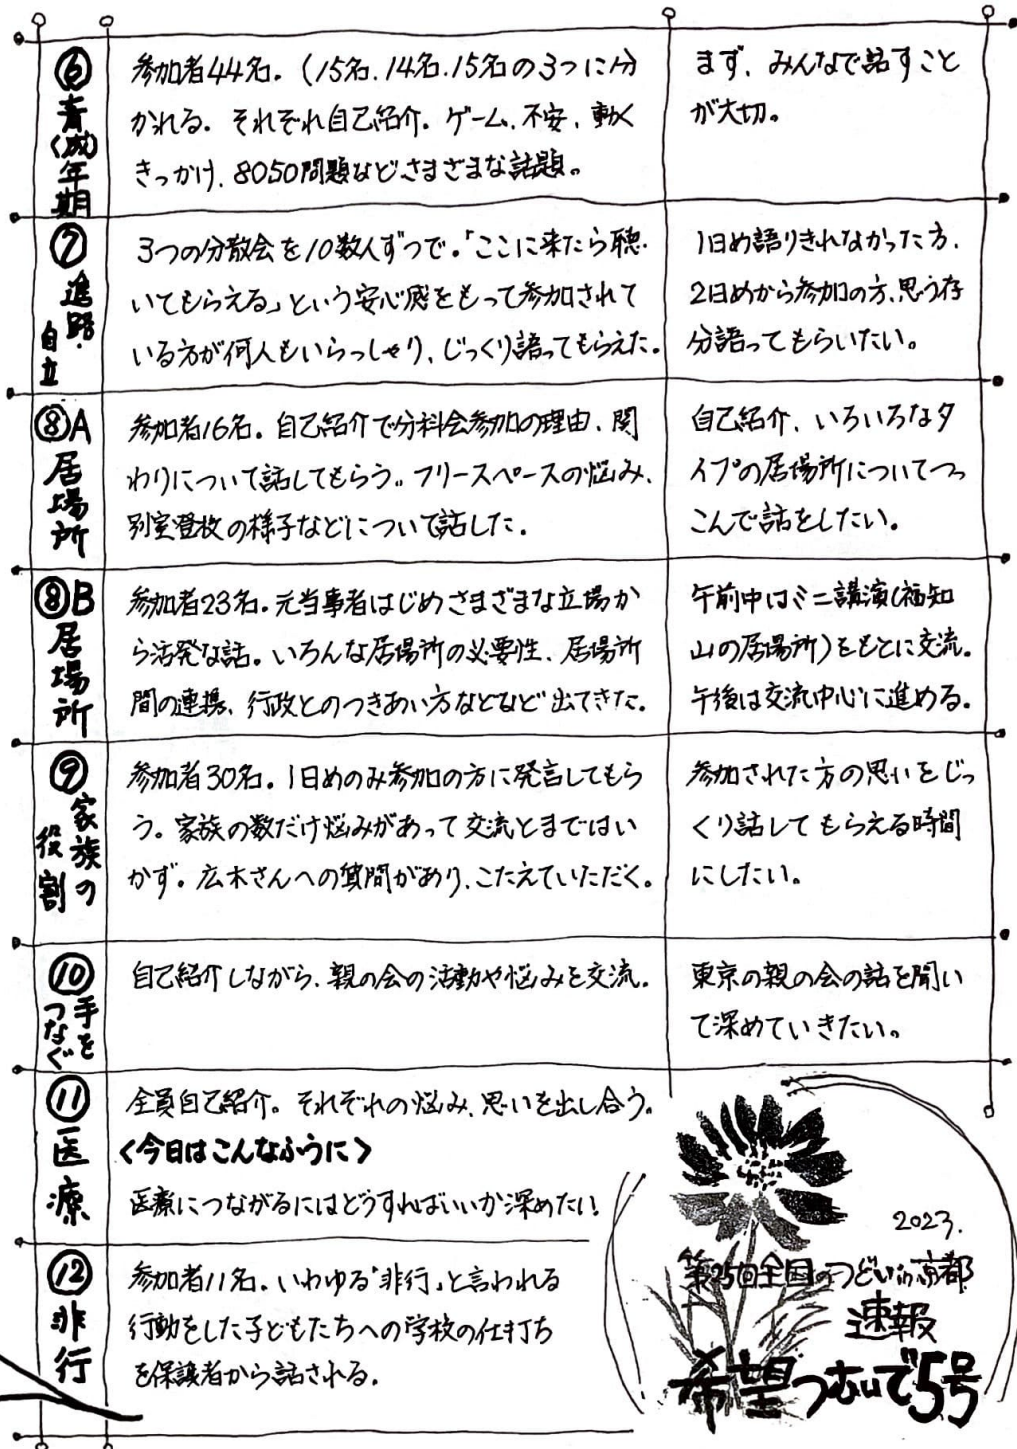 ⑥青(成)年期
参加者44名。(15名、14名、15名の3つに分
かれる。それぞれ自己紹介。ゲーム、不安、動く
きっかけ、8050問題などさまざまな話題。
まず、みんなで話すこと
が大切。
⑦進路・
自立
3つの分散会を10数人ずつで。「ここに来たら聴
いてもらえる」という安心感をもって参加されて
いる方が何人もいらっしゃり、じっくり語ってもらえた。
1日め語りきれなかった方、
2日めから参加の方、思う存
分語ってもらいたい。
⑧A
居場所
参加者16名。自己紹介で分科会参加の理由、関
わりについて話してもらう。フリースペースの悩み、
別室登校の様子などについて話した。
自己紹介、いろいろなタ
イプの居場所についてつっ
こんで話をしたい。
⑧B
居場所
参加者23名。元当事者はじめさまざまな立場か
ら活発な話。いろんな居場所の必要性、居場所
間の連携、行政とのつきあい方などなど出てきた。
午前中はミニ講演(福知
山の居場所)をもとに交流。
午後は交流中心に進める。
⑨家族の
役割
参加者30名。1日めのみ参加の方に発言してもら
う。家族の数だけ悩みがあって交流とまではい
かず。広木さんへの質問があり、こたえていただく。
参加された方の思いをじっ
くり話してもらえる時間
にしたい。
⑩手を
つなぐ
自己紹介しながら、親の会の活動や悩みを交流。
東京の親の会の話を聞い
て深めていきたい。
⑪医療
全員自己紹介。それぞれの悩み、思いを出し合う。
<今日はこんなふうに>
医療につながるにはどうすればいいか深めたい!
⑫非行
参加者11名。いわゆる「非行」と言われる
行動をした子どもたちへの学校の仕打ち
を保護者から話される。
2023.
第25回全国のつどいin京都
速報
希望つむいで5号